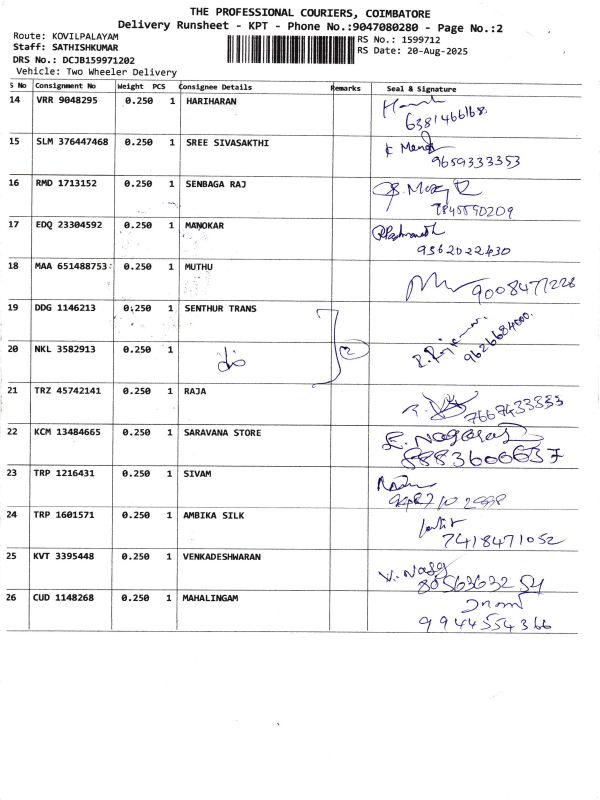 THE PROFESSIONAL COURIERS, COIMBATORE
Delivery Runsheet - KPT - Phone No.:9047080280 - Page No.:2
Route: KOVILPALAYAM
RS No.: 1599712
Staff: SATHISHKUMAR
RS Date: 20-Aug-2025
DRS No.: DCJB159971202
Vehicle: Two Wheeler Delivery
S No Consignment No Weight PCS Consignee Details Remarks Seal & Signature
14 VRR 9048295 0.250 1 HARIHARAN
6381466168
15 SLM 376447468 0.250 1 SREE SIVASAKTHI
9659333353
16 RMD 1713152 0.250 1 SENBAGA RAJ
17 EDQ 23304592 0.250 1 MANOKAR
9362022430
18 MAA 651488753 0.250 1 MUTHU
9008477226
19 DDG 1146213 0.250 1 SENTHUR TRANS
2
9626684000
20 NKL 3582913 0.250 1 do
21 TRZ 45742141 0.250 1 RAJA
7667433833
22 KCM 13484665 0.250 1 SARAVANA STORE
E. Nagaraj
8883606637
23 TRP 1216431 0.250 1 SIVAM
24 TRP 1601571 0.250 1 AMBIKA SILK
7418471052
25 KVT 3395448 0.250 1 VENKADESHWARAN
V. Nag
8056363254
26 CUD 1148268 0.250 1 MAHALINGAM
9944554366